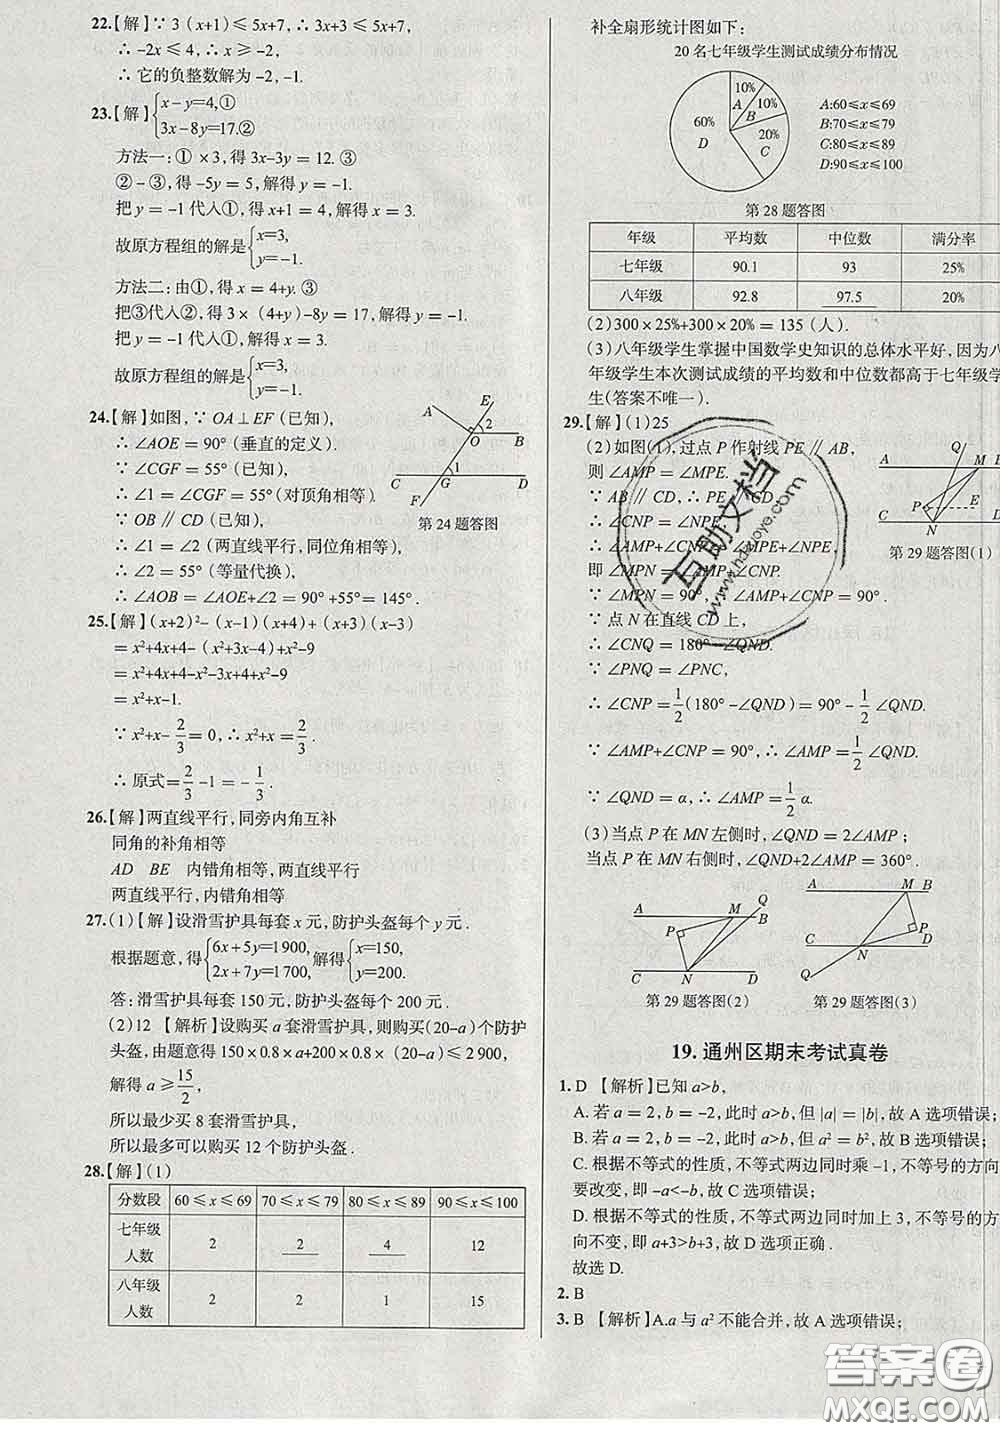 22.【解】∵ 3（x+1）≤ 5x+7，∴ 3x+3 ≤ 5x+7，
∴ -2x ≤ 4，∴ x ≥ -2，
∴ 它的负整数解为 -2，-1.
23.【解】{x-y=4,① 3x-8y=17.②
方法一：① ×3，得 3x-3y = 12. ③
② - ③，得 -5y = 5，解得 y = -1.
把 y = -1 代入①，得 x+1 = 4，解得 x = 3.
故原方程组的解是{x=3, y=-1.
方法二：由①，得 x = 4+y. ③
把③代入②，得 3 ×（4+y）-8y = 17，解得 y = -1.
把 y = -1 代入①，得 x = 3，
故原方程组的解是{x=3, y=-1.
24.【解】如图，∵ OA⊥EF（已知），
∴ ∠AOE = 90°（垂直的定义）.
∵ ∠CGF = 55°（已知），
∴ ∠1 = ∠CGF = 55°（对顶角相等）.
∵ OB ∥ CD（已知），
∴ ∠1 = ∠2（两直线平行，同位角相等），
∴ ∠2 = 55°（等量代换），
∴ ∠AOB = ∠AOE+∠2 = 90° +55°= 145°.
A E 2 O B C G 1 D F
第 24 题答图
25.【解】（x+2）²-（x-1）（x+4）+（x+3）（x-3）
= x²+4x+4-（x²+3x-4）+x²-9
= x²+4x+4-x²-3x+4+x²-9
= x²+x-1.
∵ x²+x- 2/3 = 0，∴ x²+x= 2/3 .
∴ 原式= 2/3 -1 = - 1/3 .
26.【解】两直线平行，同旁内角互补
同角的补角相等
AD BE 内错角相等，两直线平行
两直线平行，内错角相等
27.（1）【解】设滑雪护具每套 x 元，防护头盔每个 y 元 .
根据题意，得{6x+5y=1 900, 2x+7y=1 700, 解得{x=150, y=200.
答：滑雪护具每套 150 元，防护头盔每个 200 元 .
（2）12 【解析】设购买 a 套滑雪护具，则购买（20-a）个防护
头盔，由题意得 150×0.8×a+200×0.8×（20-a）≤ 2 900，
解得 a ≥ 15/2 .
所以最少买 8 套滑雪护具，
所以最多可以购买 12 个防护头盔 .
28.【解】（1）
分数段 60 ≤ x ≤ 69 70 ≤ x ≤ 79 80 ≤ x ≤ 89 90 ≤ x ≤ 100
七年级人数 2 2 4 12
八年级人数 2 2 1 15
补全扇形统计图如下：
20 名七年级学生测试成绩分布情况
10% A 10% B 20% C 60% D
A:60≤x≤69
B:70≤x≤79
C:80≤x≤89
D:90≤x≤100
第 28 题答图
年级 平均数 中位数 满分率
七年级 90.1 93 25%
八年级 92.8 97.5 20%
（2）300×25%+300×20% = 135（人）.
（3）八年级学生掌握中国数学史知识的总体水平好，因为八
年级学生本次测试成绩的平均数和中位数都高于七年级学
生（答案不唯一）.
29.【解】（1）25
（2）如图（1），过点 P 作射线 PE ∥ AB，
则 ∠AMP = ∠MPE.
∵ AB ∥ CD，∴ PE ∥ CD，
∴ ∠CNP = ∠NPE，
∴ ∠AMP+∠CNP = ∠MPE+∠NPE，
即 ∠MPN = ∠AMP+∠CNP.
∵ ∠MPN = 90°，∴ ∠AMP+∠CNP = 90°.
∵ 点 N 在直线 CD 上，
∴ ∠CNQ = 180° - ∠QND.
∵ ∠PNQ = ∠PNC，
∴ ∠CNP = 1/2（180° -∠QND）= 90°- 1/2 ∠QND.
∵ ∠AMP+∠CNP = 90°，∴ ∠AMP = 1/2 ∠QND.
∵ ∠QND = α，∴ ∠AMP = 1/2 α.
Q M A P E C N
第 29 题答图（1）
（3）当点 P 在 MN 左侧时，∠QND = 2∠AMP；
当点 P 在 MN 右侧时，∠QND+2∠AMP = 360°.
A M Q B P C N D
第 29 题答图（2）
A M B P C D N Q
第 29 题答图（3）
19. 通州区期末考试真卷
1. D 【解析】已知 a>b，
A. 若 a = 2，b = -2，此时 a>b，但 |a| = |b|，故 A 选项错误；
B. 若 a = 2，b = -2，此时 a>b，但 a² = b²，故 B 选项错误；
C. 根据不等式的性质，不等式两边同时乘 -1，不等号的方向
要改变，即 -a<-b，故 C 选项错误；
D. 根据不等式的性质，不等式两边同时加上 3，不等号的方
向不变，即 a+3>b+3，故 D 选项正确 .
故选 D.
2. B
3. B 【解析】A.a 与 a² 不能合并，故 A 选项错误；
互助文档
www.hzuoye.com
答案圈
MXQE.COM